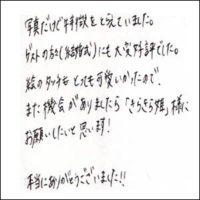 写真だけど特徴をとらえていました。
ゲストの方々(結婚式)にも大変好評でした。
絵のタッチも とっても可愛いかったので
また機会がありましたら「きらきら姫」様に
お願いしたいと思います!
本当にありがとうございました!!